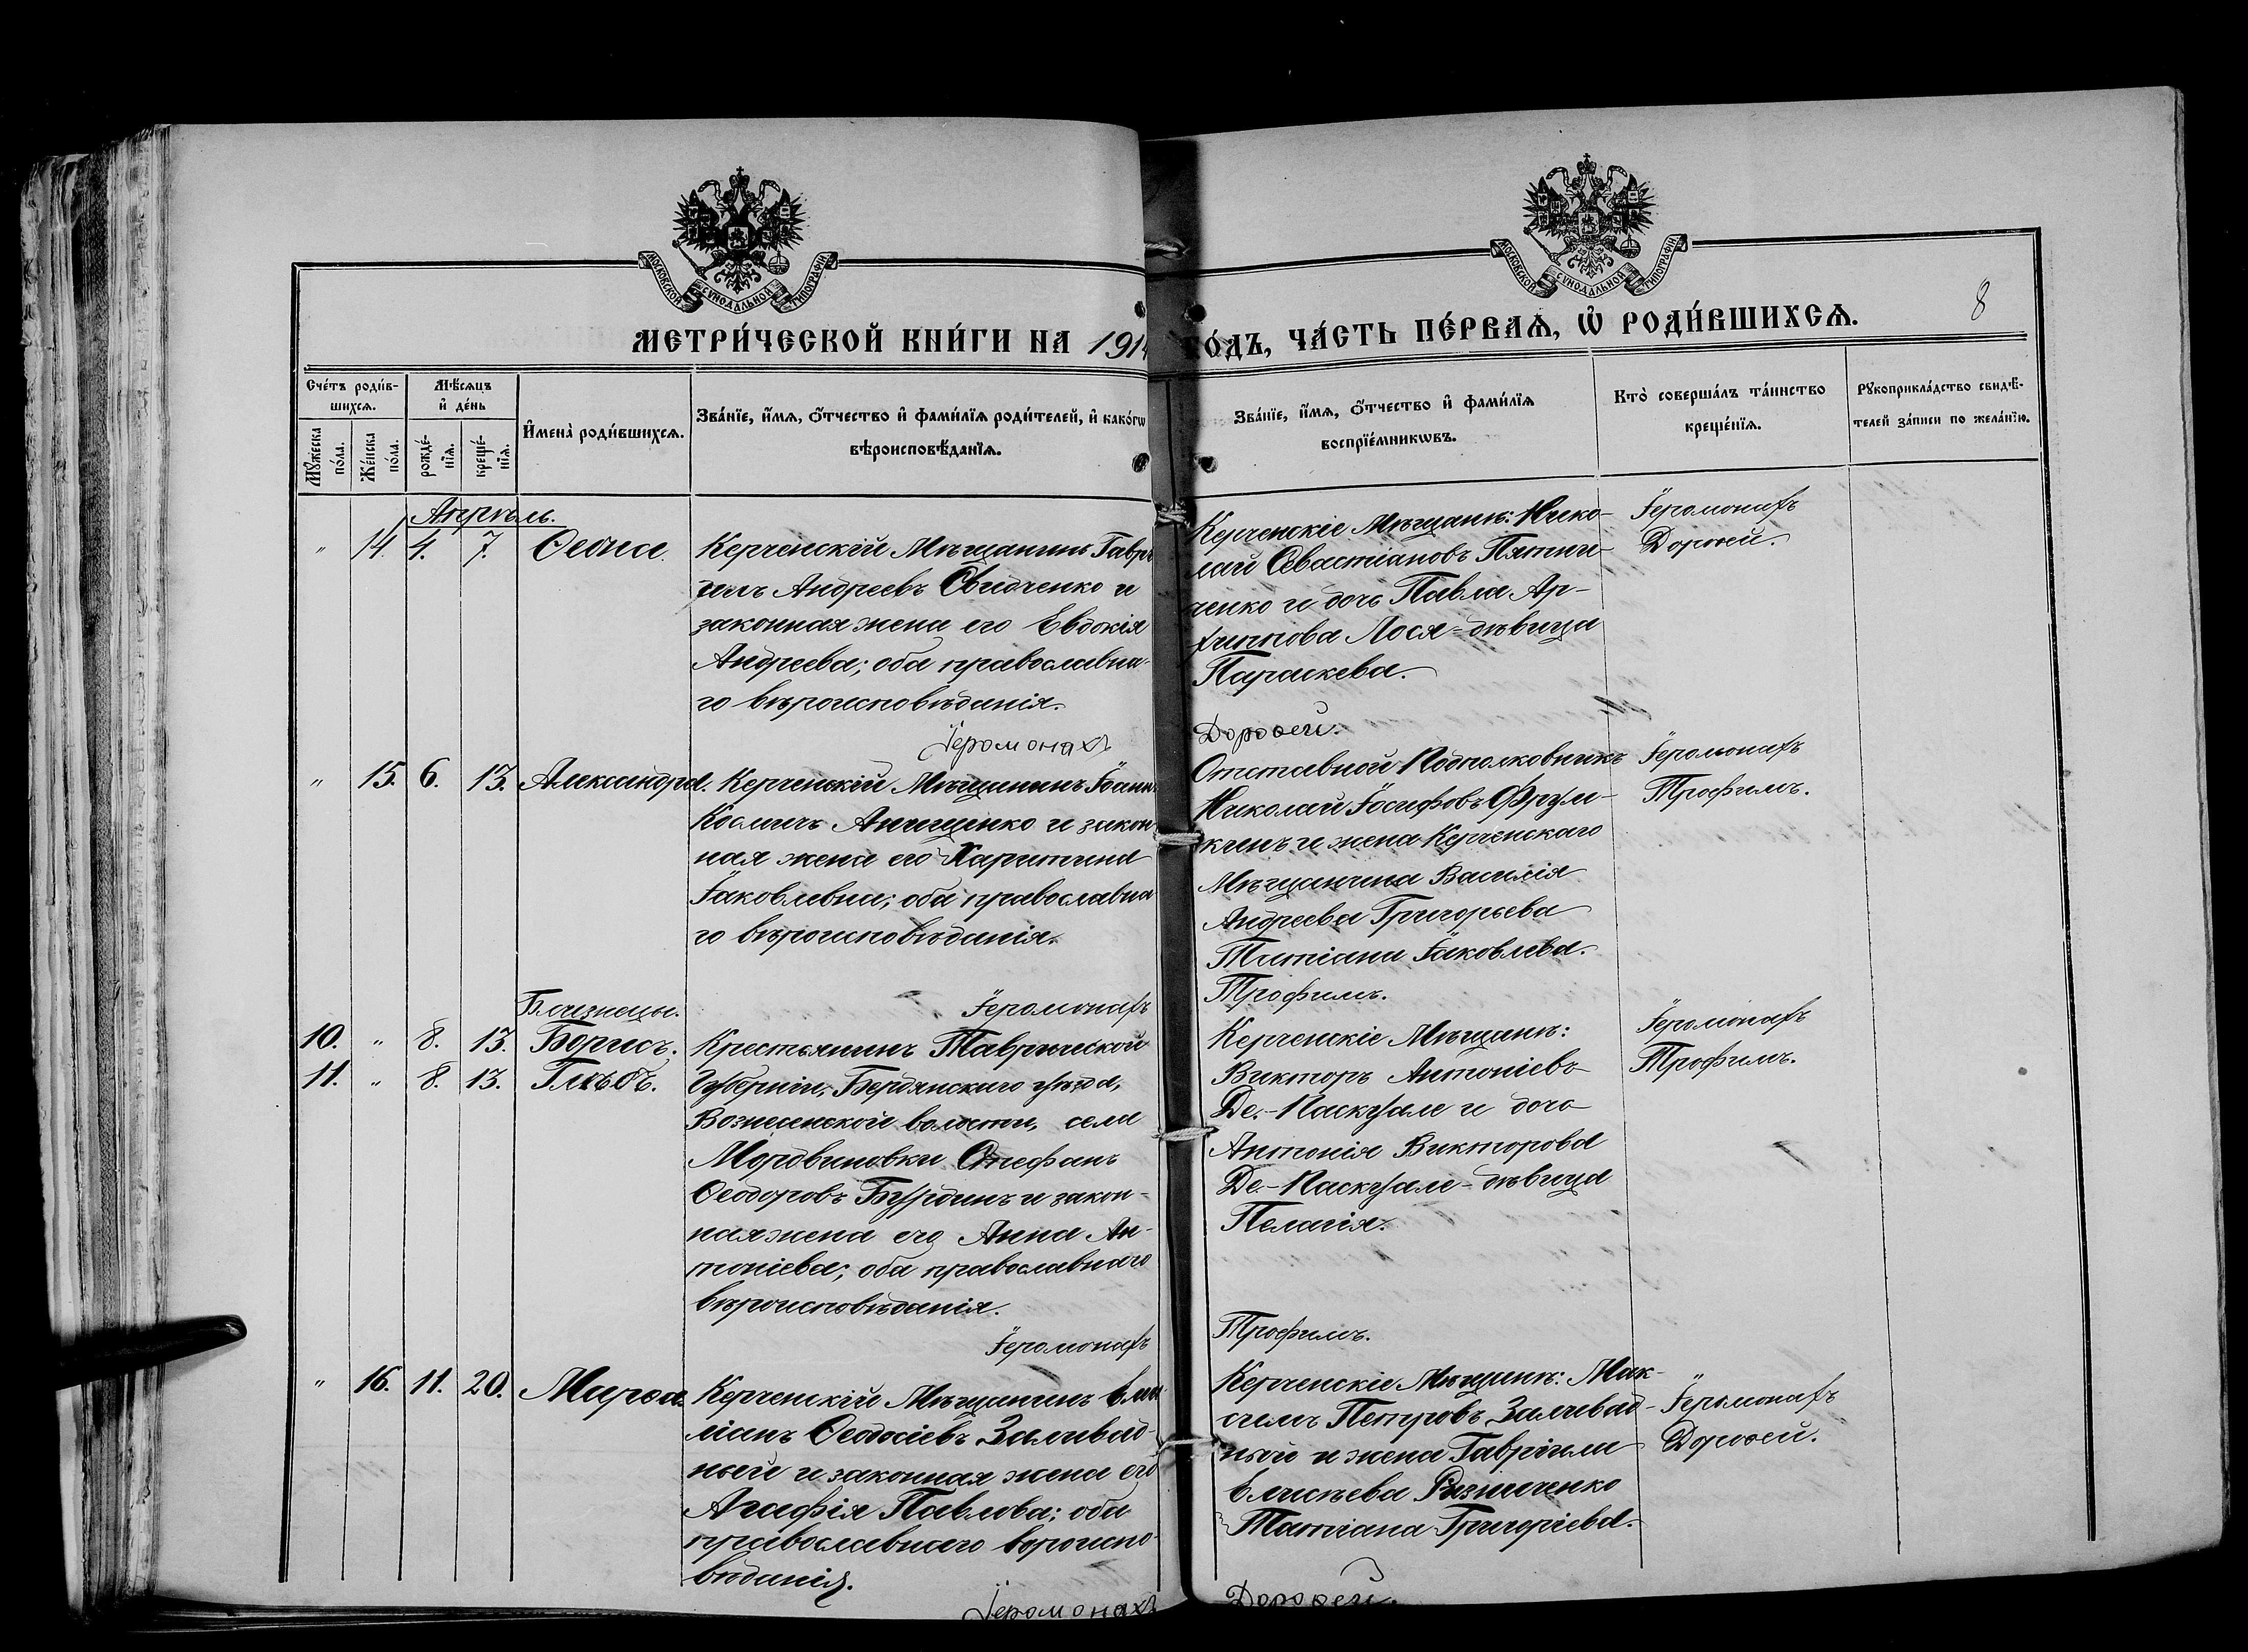 МОСКОВСКОЙ СУНОДАЛЬНОЙ ТИПОГРАФІИ
МОСКОВСКОЙ СУНОДАЛЬНОЙ ТИПОГРАФІИ
8
МЕТРИ́ЧЕСКОЙ КНИ́ГИ НА 191
О́ДЪ, ЧА́СТЬ ПЕ́РВАѦ, Ѡ҆ РОДИ́ВШИХСѦ.
Сче́тъ роди́в-
шихсѧ.
Мꙋ́жеска по́ла.
Же́нска по́ла.
Мѣ́сѧцъ и҆ де́нь
рожде́-нїѧ.
креще́-нїѧ.
И҆мена̀ роди́вшихсѧ.
Зва́нїе, и҆́мѧ, ѻ҆́тчество и҆ фами́лїѧ роди́телей, и҆ како́гѡ
вѣроисповѣ́данїѧ.
Зва́нїе, и҆́мѧ, ѻ҆́тчество и҆ фами́лїѧ
воспрїе́мникѡвъ.
Кто̀ соверша́лъ та́инство
креще́нїѧ.
Рꙋкоприкла́дство свидѣ́-
телей за́писи по жела́нїю.
Апрѣль.
" 14. 4. 7. Ѳеѳиса
Керченскій Мѣщанинъ Гаврі-
илъ Андреевъ Свидченко и
законная жена его Евдокія
Андреева; оба православна-
го вѣроисповѣданія.
Іеромонахъ
Керченскіе Мѣщане: Нико-
лай Севастіановъ Пятни-
ченко и дочь Павла Ар-
хипова Лося - дѣвица
Параскева.
Дороѳей.
Іеромонахъ
Дороѳей.
" 15. 6. 13. Александра.
Керченскій Мѣщанинъ Іоаннъ
Космичъ Анищенко и закон
ная жена его Харитина
Іаковлевна; оба православна
го вѣроисповѣданія.
Іеромонахъ
Отставной Подполковникъ
Николай Іосифовъ Фрум-
кинъ и жена Керченскаго
Мѣщанина Василія
Андреева Григорьева
Татіана Іаковлева.
Трофимъ.
Іеромонахъ
Трофимъ.
Близнецы.
10. " 8. 13. Борисъ.
11. " 8. 13. Глѣбъ.
Крестьянинъ Таврической
Губерніи, Бердянскаго уѣзда,
Вознесенской волости, села
Мордвиновки Стефанъ
Ѳеодоровъ Бурдинъ и закон-
ная жена его Анна Ан-
тоніева; оба православнаго
вѣроисповѣданія.
Іеромонахъ
Керченскіе Мѣщане:
Викторъ Антоніевъ
Де-Паскуале и дочь
Антонія Викторова
Де-Паскуале - дѣвица
Пелагія.
Трофимъ.
Іеромонахъ
Трофимъ.
" 16. 11. 20. Марѳа.
Керченскій Мѣщанинъ Еми
ліанъ Ѳеодосіевъ Заливад-
ный и законная жена его
Агафія Павлова; оба
православнаго вѣроиспо-
вѣданія.
Іеромонахъ
Керченскіе Мѣщане: Мак-
симъ Петровъ Заливад-
ный и жена Гавріила
Елисѣева Різниченко
Татіана Григоріева.
Дороѳей.
Іеромонахъ
Дороѳей.